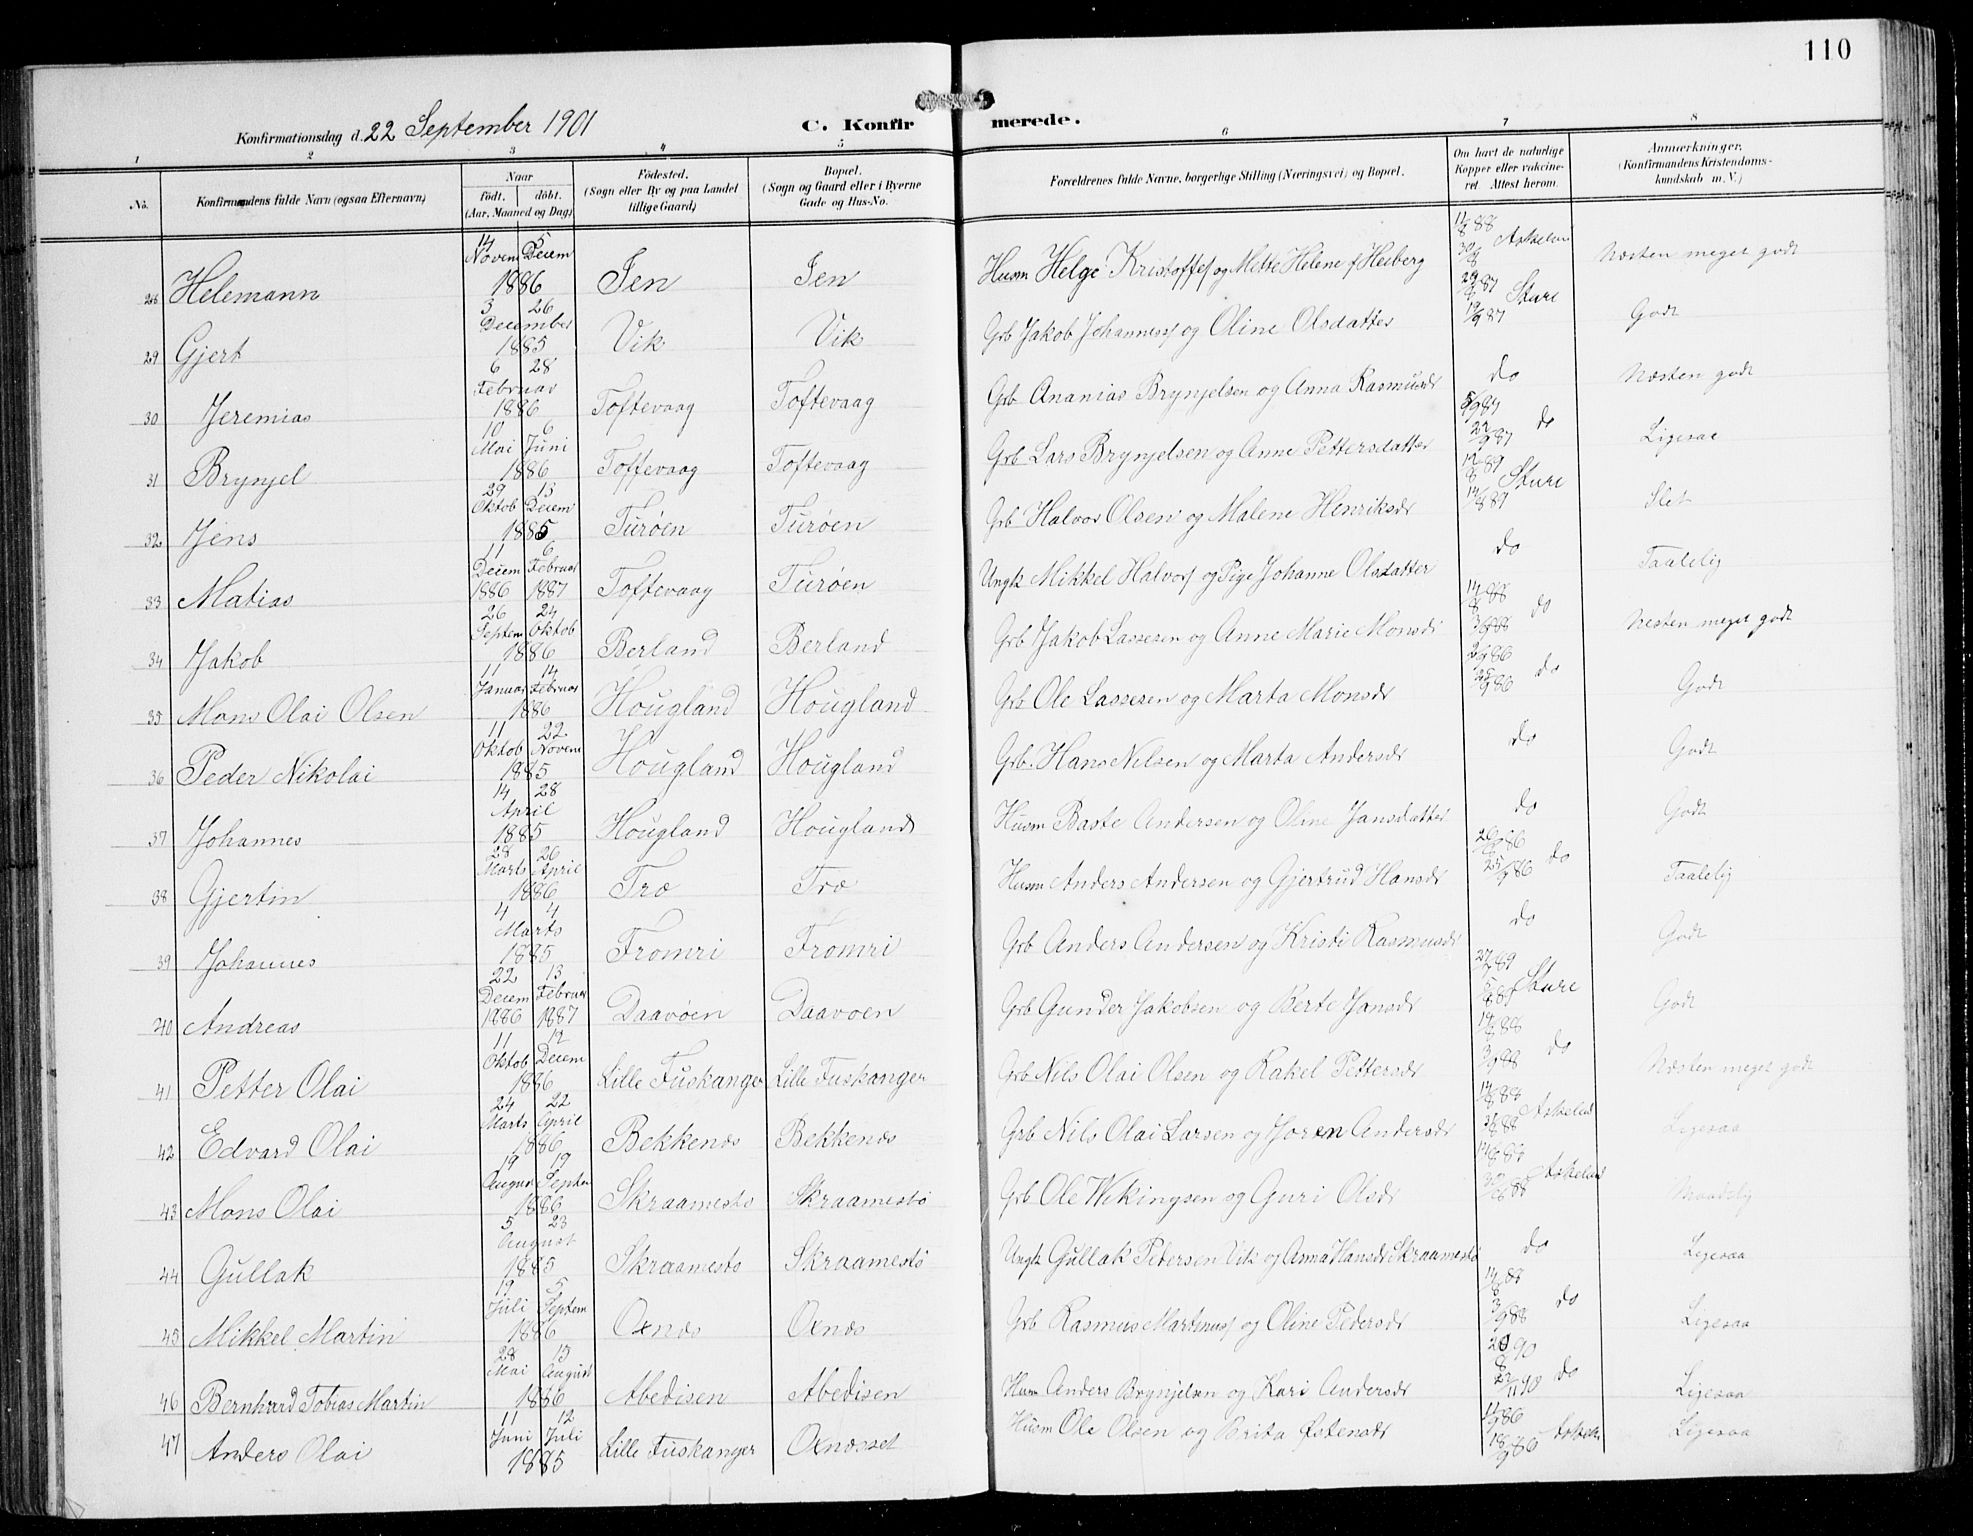 110
Konfirmationsdag d. 22 September 1901
C. Konfir merede.
1 2 3 4 5 6 7 8
No. Konfirmandens fulde Navn (ogsaa Efternavn) Naar födt. döbt. (Aar, Maaned og Dag) Födested. (Sogn eller By og paa Landet tillige Gaard) Bopæl. (Sogn og Gaard eller i Byerne Gade og Hus-No. Forældrenes fulde Navne, borgerlige Stilling (Næringsvei) og Bopæl. Om havt de naturlige Kopper eller vakcineret. Attest herom. Anmærkninger. (Konfirmandens Kristendomskundskab m. V.)
28 Helemann 14 Novem 5 Decem 1886 Jen Jen Husm Helge Kristoffes og Mette Helene f Heiberg Næsten meget godt
29 Gjert 3 26 December 1885 Vik Vik Grb Jakob Johanness og Oline Olsdatter Sture Godt
30 Jeremias 6 28 Februar 1886 Toftevaag Toftevaag Grb Ananias Brynjelsen og Anna Rasmusdr do Næsten godt
31 Brynjel 10 Mai 6 Juni 1886 Toftevaag Toftevaag Grb Lars Brynjelsen og Anne Pettersdatter do Ligesaa
32 Jens 29 Oktob 13 Decem 1885 Turøen Turøen Grb Halvor Olsen og Malene Henriksdr Sture Slet
33 Matias 11 Decem 1886 6 Februar 1887 Toftevaag Turøen Ungk Mikkel Halvors og Pige Johanne Olsdatter do Taalelig
34 Jakob 26 Septem 24 Oktob 1886 Berland Berland Grb Jakob Lassesen og Anne Marie Monsdr do Næsten meget godt
35 Mons Olai Olsen 11 Januar 14 Februar 1886 Hougland Hougland Grb Ole Lassesen og Marta Monsdr do Godt
36 Peder Nikolai 11 Oktob 22 Novem 1885 Hougland Hougland Grb. Hans Nilsen og Marta Andersdr do Godt
37 Johannes 14 28 April 1885 Hougland Hougland Husm Baste Andersen og Oline Jansdatter do Godt
38 Gjertin 28 Marts 26 April 1886 Træ Træ Husm Anders Andersen og Gjertrud Hansdr do Taalelig
39 Johannes 4 4 Marts 1885 Fromri Fromri Grb Anders Andersen og Kristi Rasmusdr do Godt
40 Andreas 22 Decem 1886 13 Februar 1887 Daavøen Daavoen Grb Gunder Jakobsen og Berte Jansdr Sture Godt
41 Petter Olai 11 Oktob 12 Decem 1886 Lille Fuskanger Lille Fuskanger Grb Nils Olai Olsen og Rakel Pettersdr do Næsten meget godt
42 Edvard Olai 24 Marts 22 April 1886 Bekkenæs Bekkenæs Grb Nils Olai Larsen og Joren Andersdr Ligesaa
43 Mons Olai 19 August 19 Septem 1886 Skraamestø Skraamestø Grb Ole Wikingsen og Guri Olsdr Maadelig
44 Gullak 5 23 August 1885 Skraamestø Skraamestø Ungk Gullak Petersen Vik og Anna Hansdr Skraamestø do Ligesaa
45 Mikkel Martin 19 Juli 5 Septem 1886 Oxnæs Oxnæs Grb Rasmus Martinus og Oline Pedersdr do Ligesaa
46 Bernhard Tobias Martin 28 Mai 15 August 1886 Abedisen Abedisen Husm Anders Brynjelsen og Kari Andersdr do Ligesaa
47 Anders Olai 11 Juni 12 Juli 1885 Lille Fuskanger Oxnæsset Husm Ole Olsen og Brita Østensdr Ligesaa